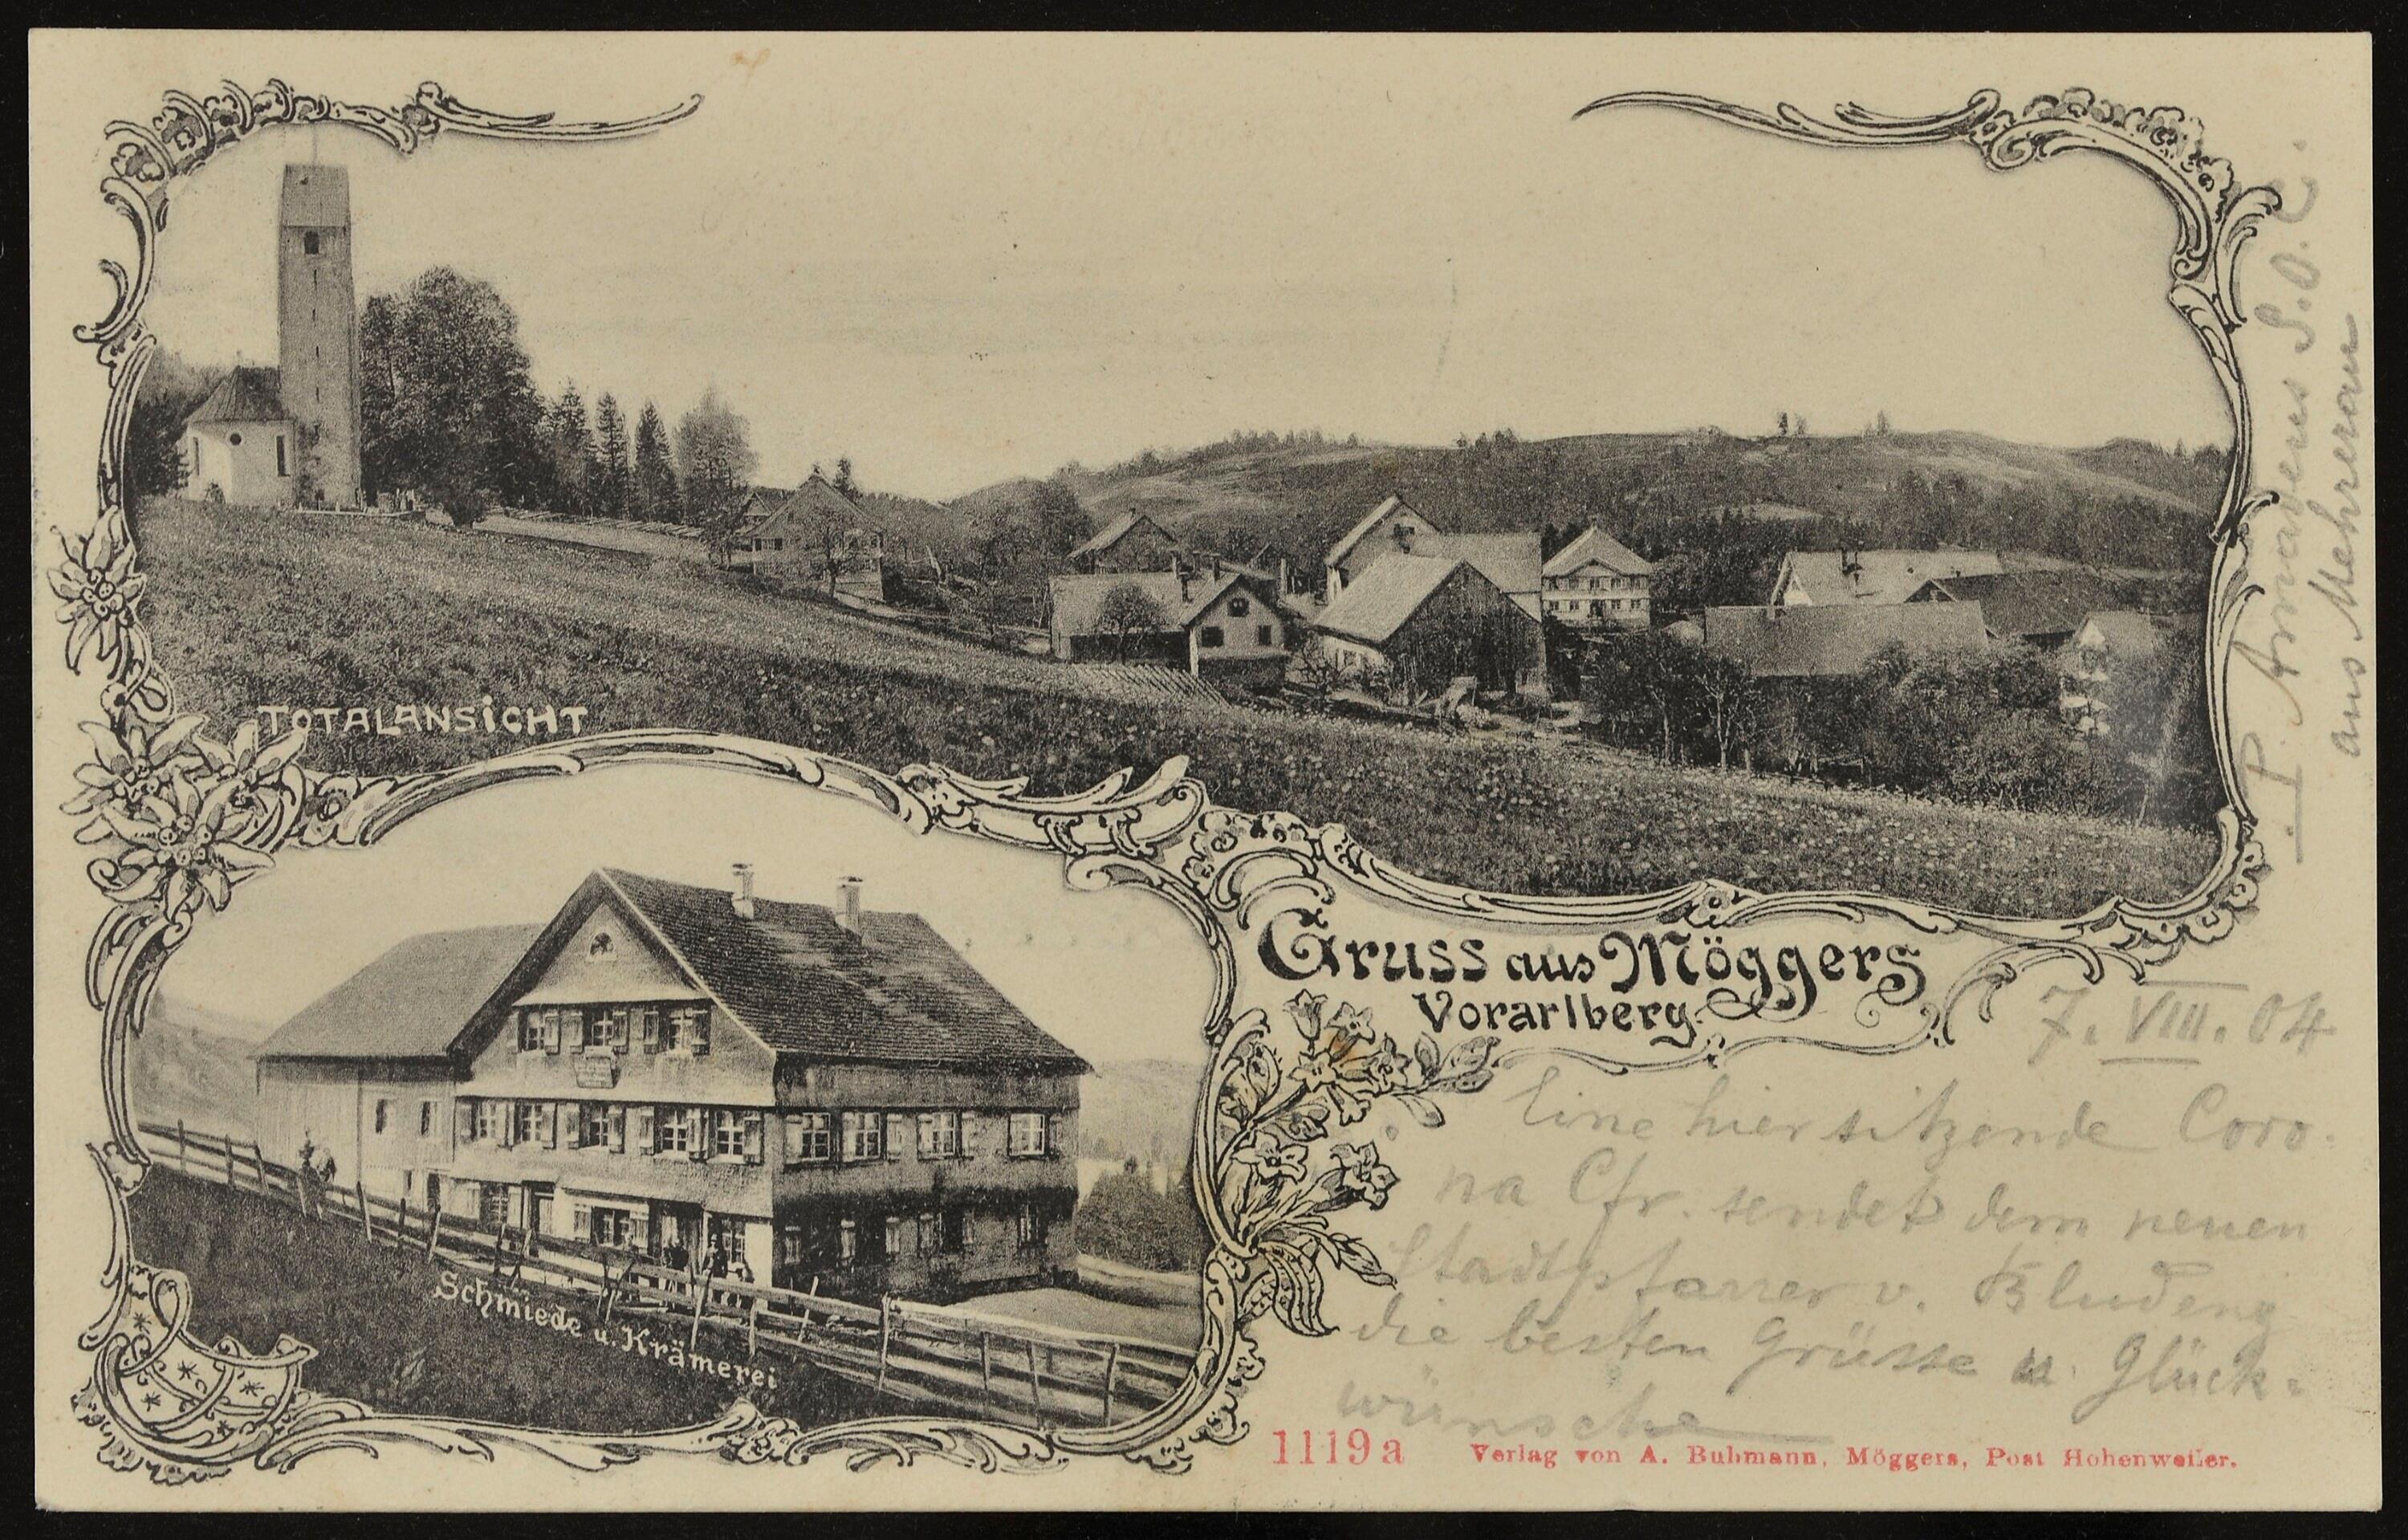 TOTALANSICHT
Gruss aus Möggers
Vorarlberg
Schmiede u. Krämerei
7. VIII. 04
Eine hier sitzende Coro-
na Cfr. sendet dem neuen
Stadtpfarrer v. Bludenz
die besten Grüsse u. Glück-
wünsche
P. Amadeus S. O. C.
aus Mehrerau
1119 a Verlag von A. Buhmann, Möggers, Post Hohenweiler.